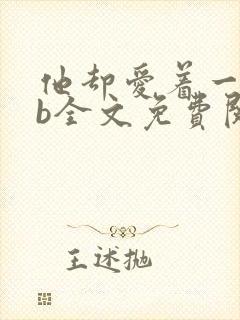 他却爱着一
b全文免費閱
王述抛